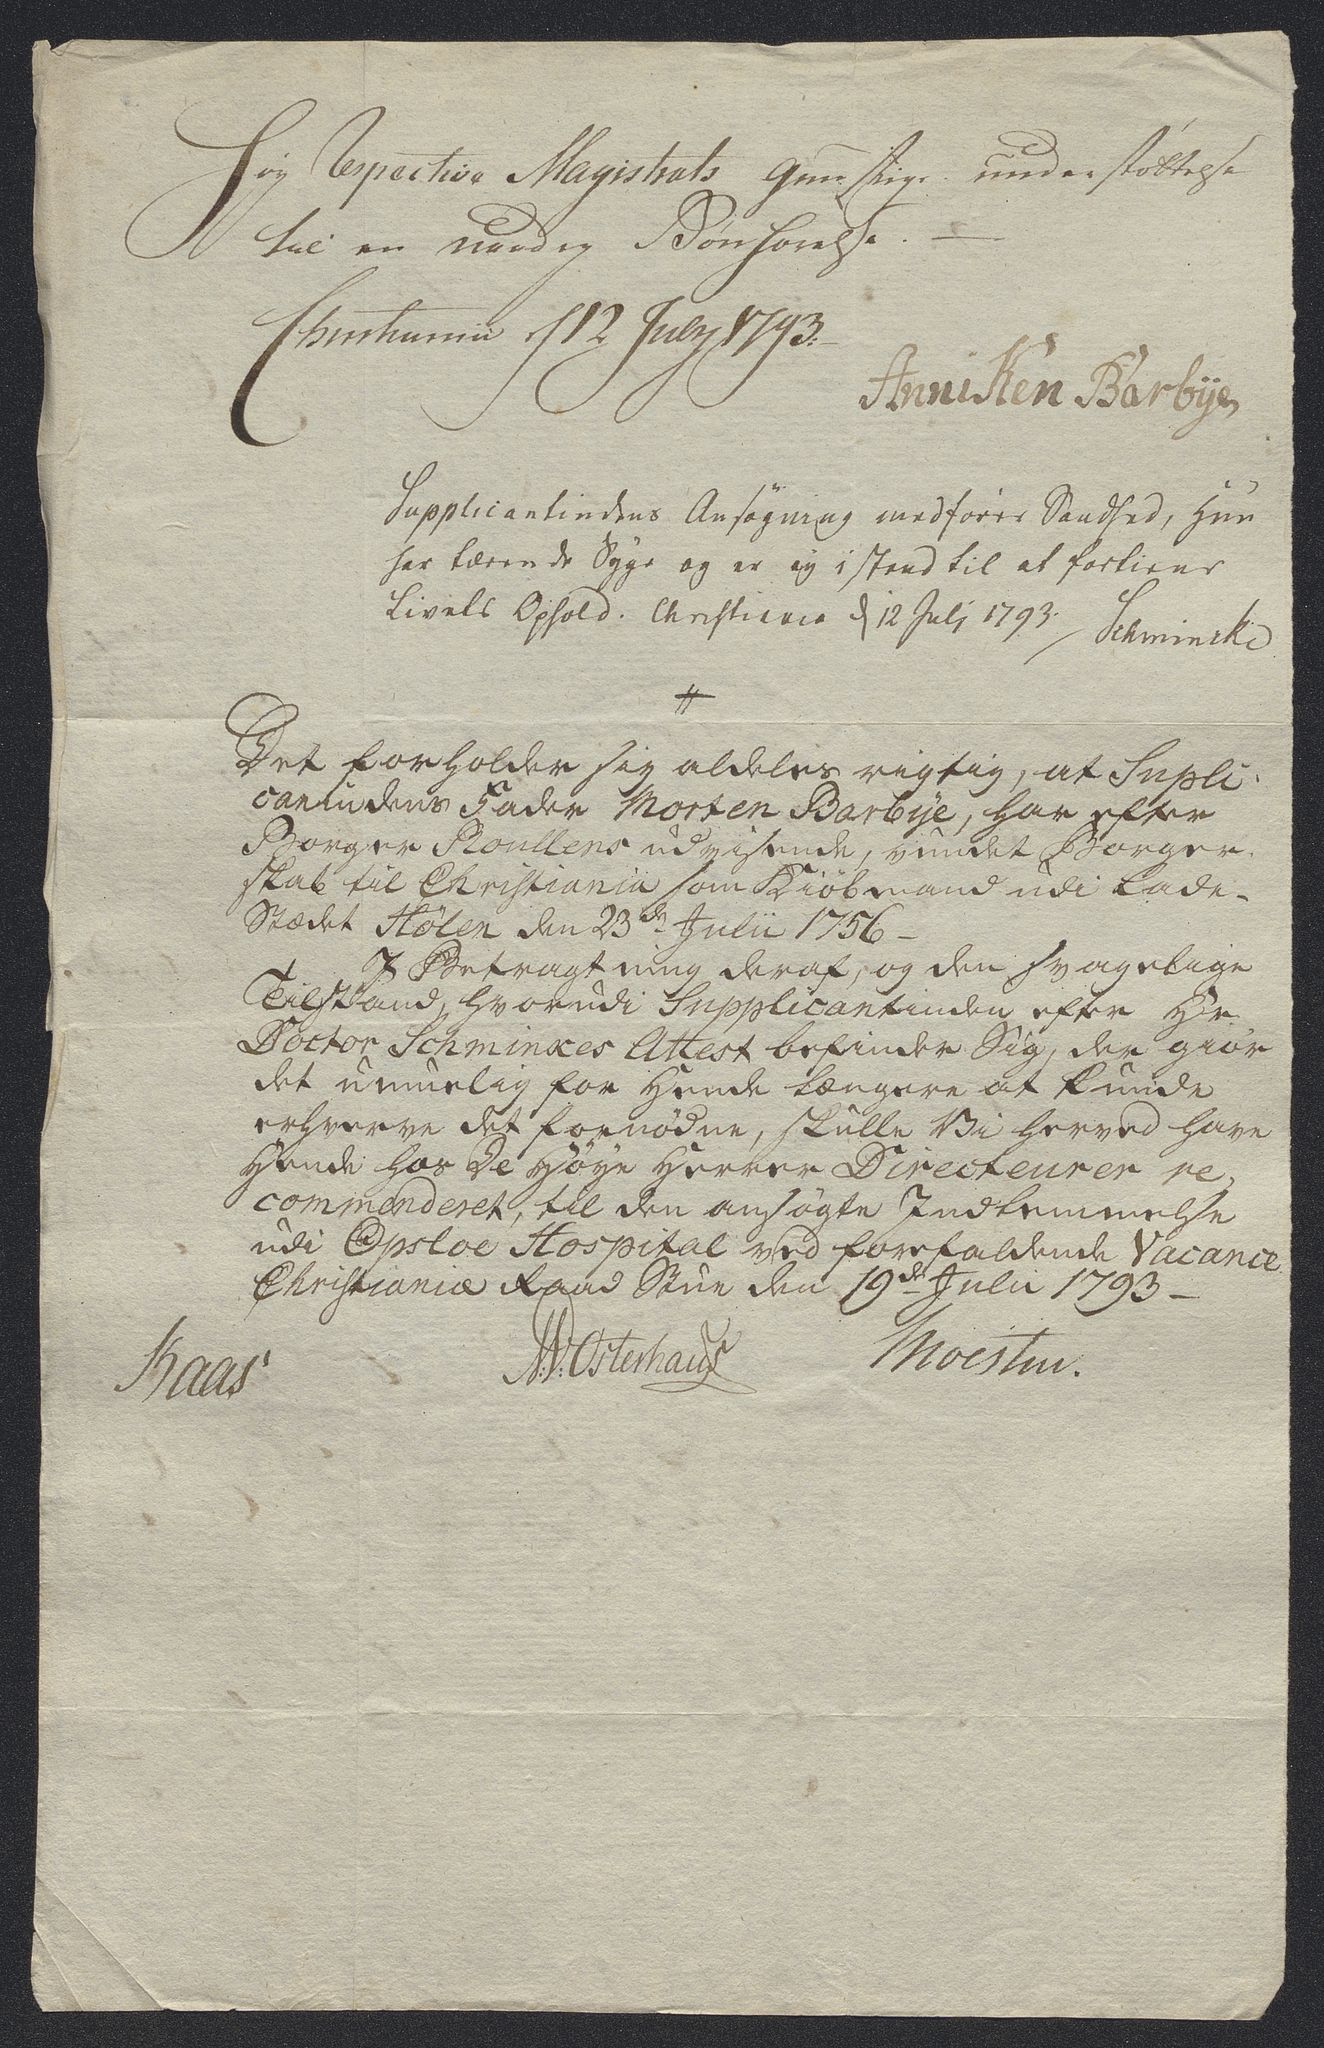 Høy respective Magistrats gunstige understøttelse
til en naadig Bønhørelse. —
Christiania d 12 July 1793.
Anniken Barbye,
Supplicantindens Ansøgning medfører Sandhed, Hun
har tærende Syge og er ey i stand til at fortiene
Livets Ophold. Christiania d 12 Julj 1793. Schmincke
Det forholder sig aldeles rigtig, at Supli-
cantindens Fader Morten Barbye, har efter
Borger Roullens udvisende, vundet Borger-
skab til Christiania som Kiøbmand udi Lade-
Stædet Hølen den 23de Julii 1756 –
I Betragtning deraf, og den svagelige
Tilstand, hvorudi Supplicantinden efter Hr.
Doctor Schminkes Attest befinder Sig, der giør
det umuelig for Hende længere at kunde
erhverve det fornødne, skulle Vi herved have
Hende hos De Høye Herrer Directeurer re-
commenderet, til den ansøgte Indlemmelse
udi Opsloe Hospital ved forefaldende Vacance
Christianiæ Raad Stue den 19de Julii 1793 –
Kaas N: W: Osterhaus Moestue.